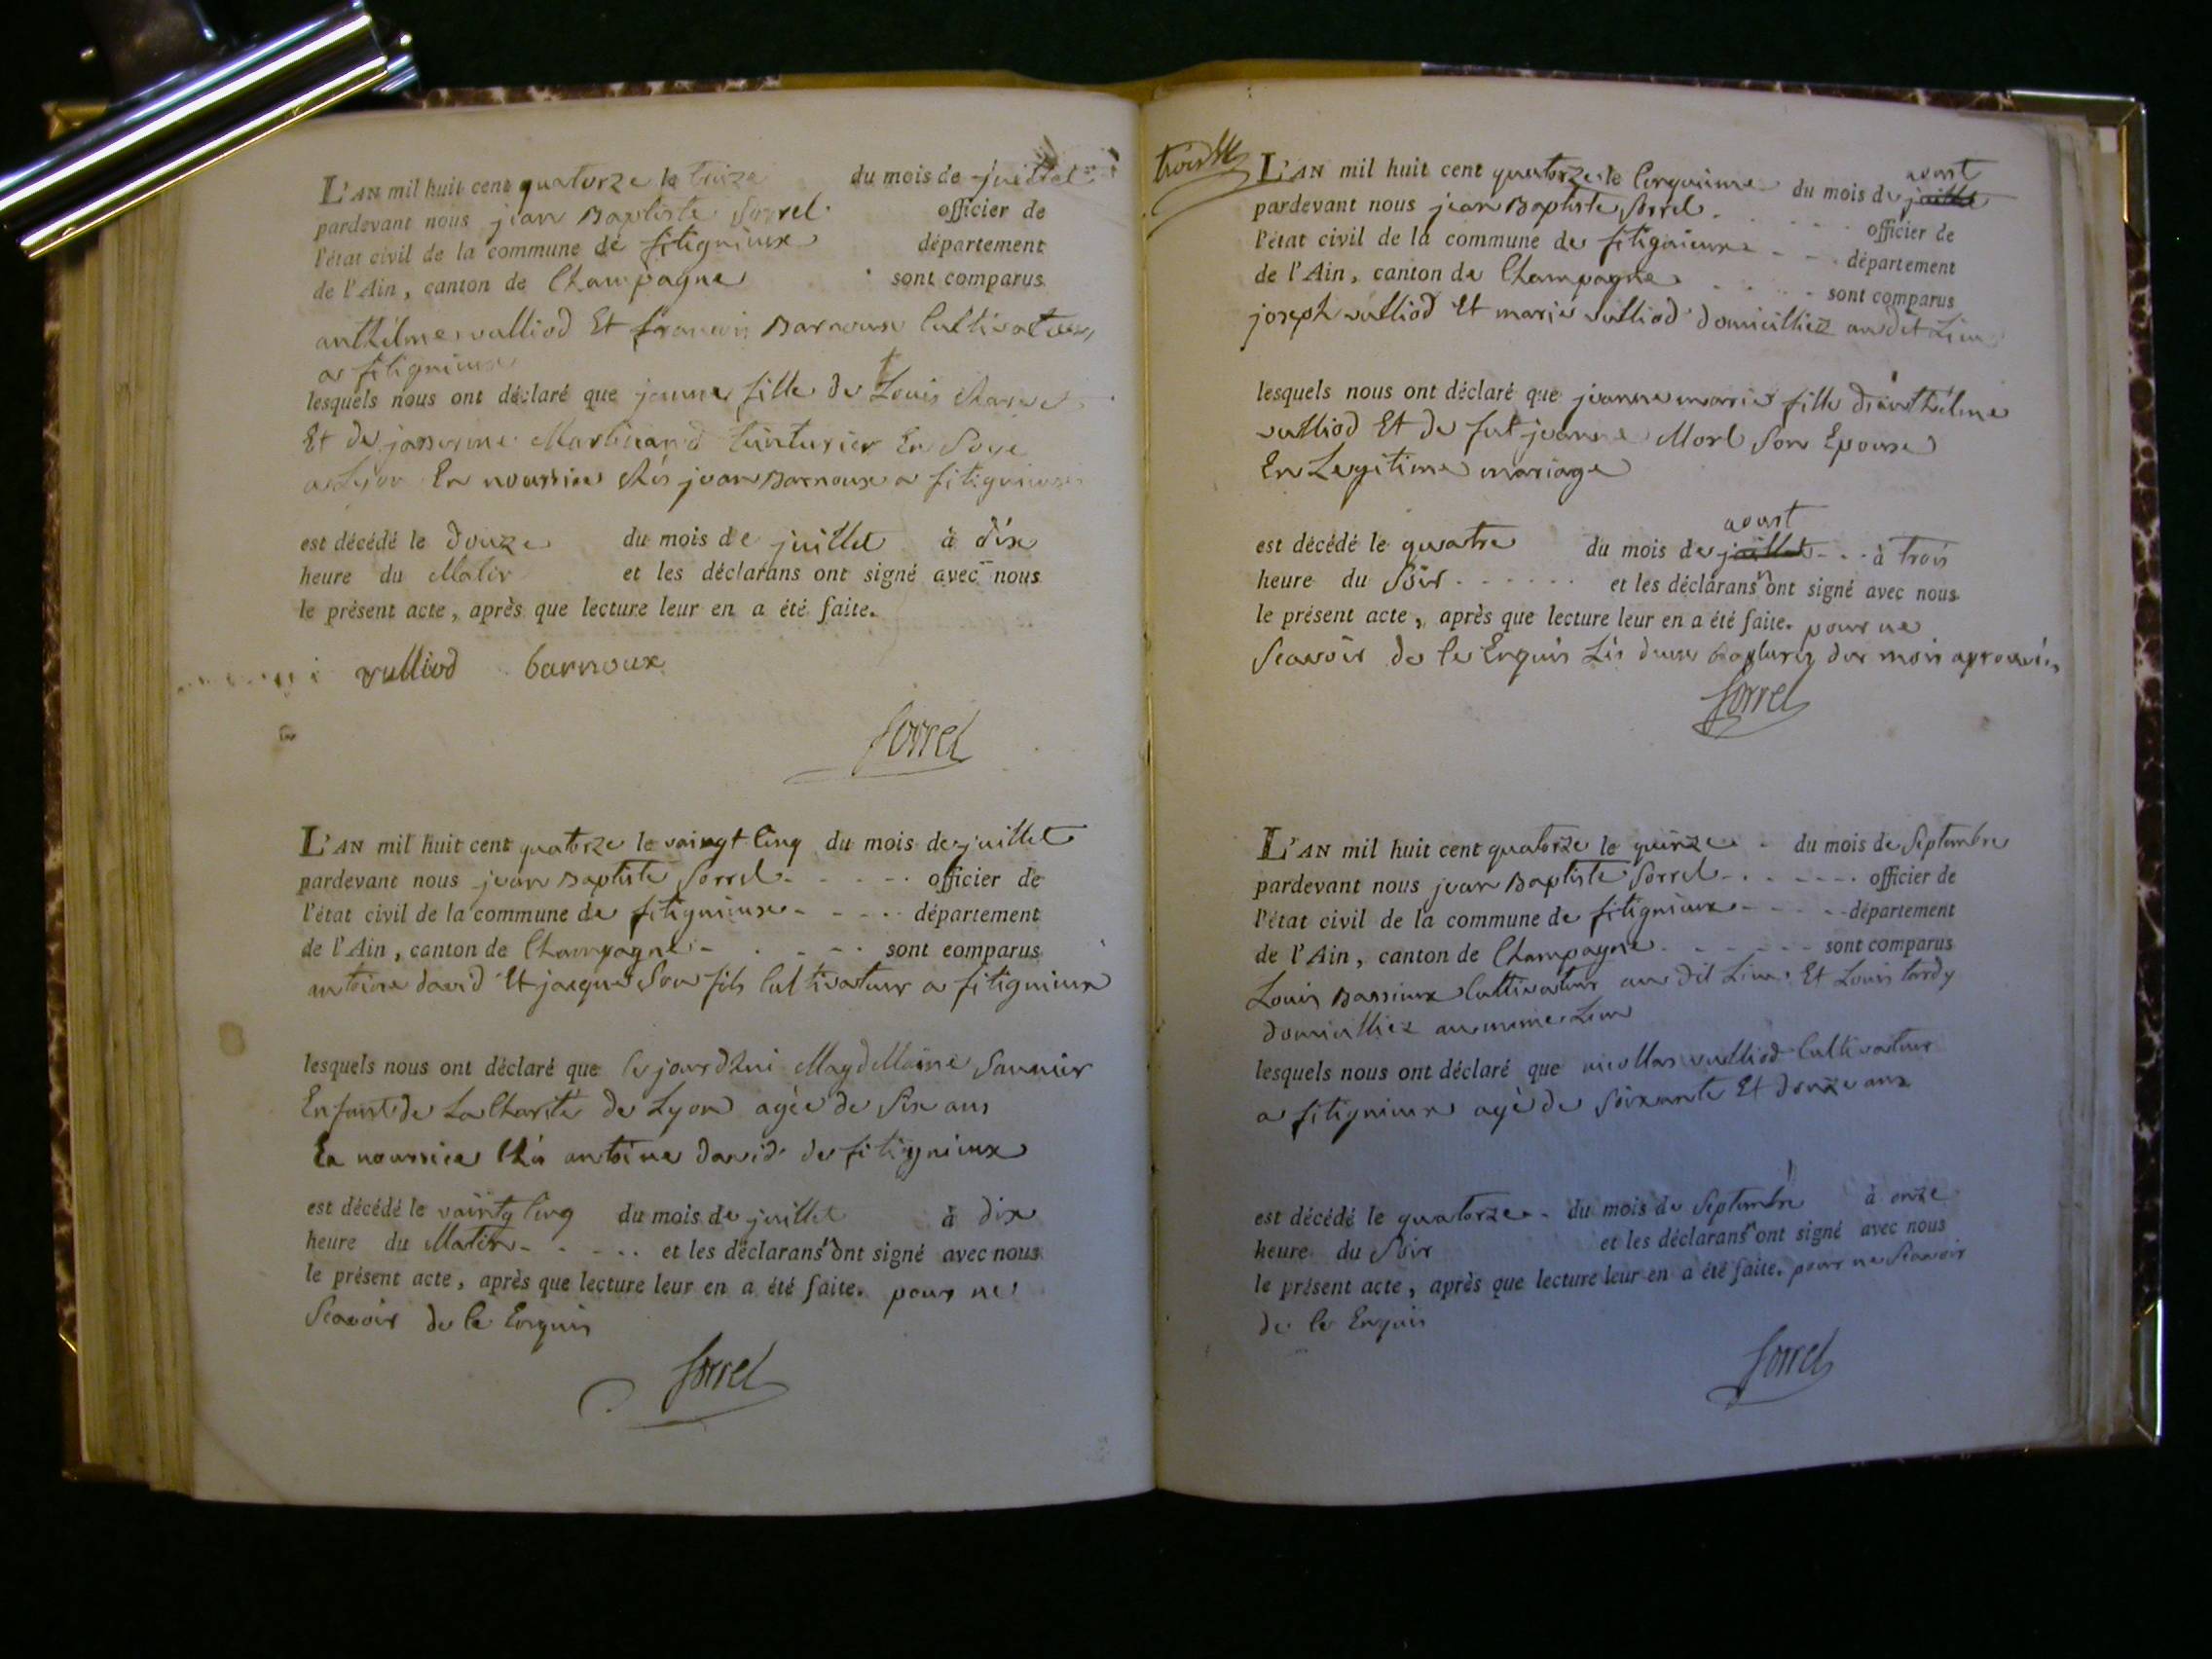 L'AN mil huit cent quatorze le treize du mois de juillet
pardevant nous jean Baptiste Sorrel officier de
l'état civil de la commune de fitignieux département
de l'Ain, canton de Champagne sont comparus
anthelme vulliod Et francois Barnoux Cultivateurs
a fitignieux
lesquels nous ont déclaré que jeanne fille de Louis
Et de Martinand teinturier En Soye
a Lyon En nourrice Chés jean Barnoux a fitignieux
est décédé le douze du mois de juillet à dix
heure du Matin et les déclarans ont signé avec nous
le présent acte, après que lecture leur en a été faite.
vulliod barnoux
Sorrel
L'AN mil huit cent quatorze le vaingt Cinq du mois de juillet
pardevant nous jean Baptiste Sorrel officier de
l'état civil de la commune de fitignieux département
de l'Ain, canton de Champagne sont comparus
antoine david Et jacque Son fils Cultivateur a fitignieux
lesquels nous ont déclaré que Cejourdhui Magdellaine Saunier
Enfant de La Charité de Lyon agée de Six ans
En nourrice Chés antoine david de fitignieux
est décédé le vaintg Cinq du mois de juillet à dix
heure du Matin et les déclarans n ont signé avec nous
le présent acte, après que lecture leur en a été faite. pour ne
Scavoir de Ce Enquis
Sorrel
trois
L'AN mil huit cent quatorze le Cinquième du mois de juillet aoust
pardevant nous jean Baptiste Sorrel officier de
l'état civil de la commune de fitignieux département
de l'Ain, canton de Champagne sont comparus
joseph vulliod Et marie vulliod domicilliez au dit Lieu
lesquels nous ont déclaré que jeanne marie fille d'anthelme
vulliod Et de fut jeanne Morl Son Epouse
En Legitime mariage
est décédé le quatre du mois de juillet aoust à trois
heure du Soir et les déclarans n ont signé avec nous
le présent acte, après que lecture leur en a été faite. pour ne
Scavoir de Ce Enquis Les deux du mois aprouvés
Sorrel
L'AN mil huit cent quatorze le quinze du mois de Septembre
pardevant nous jean Baptiste Sorrel officier de
l'état civil de la commune de fitignieux département
de l'Ain, canton de Champagne sont comparus
Louis Bassieux Cultivateur au dit Lieu Et Louis tardy
domicilliez au meme Lieu
lesquels nous ont déclaré que nicollas vulliod Cultivateur
a fitignieux agé de Soixante Et douze ans
est décédé le quatorze du mois de Septembre à onze
heure du Soir et les déclarans n ont signé avec nous
le présent acte, après que lecture leur en a été faite. pour ne Scavoir
de Ce Enquis
Sorrel